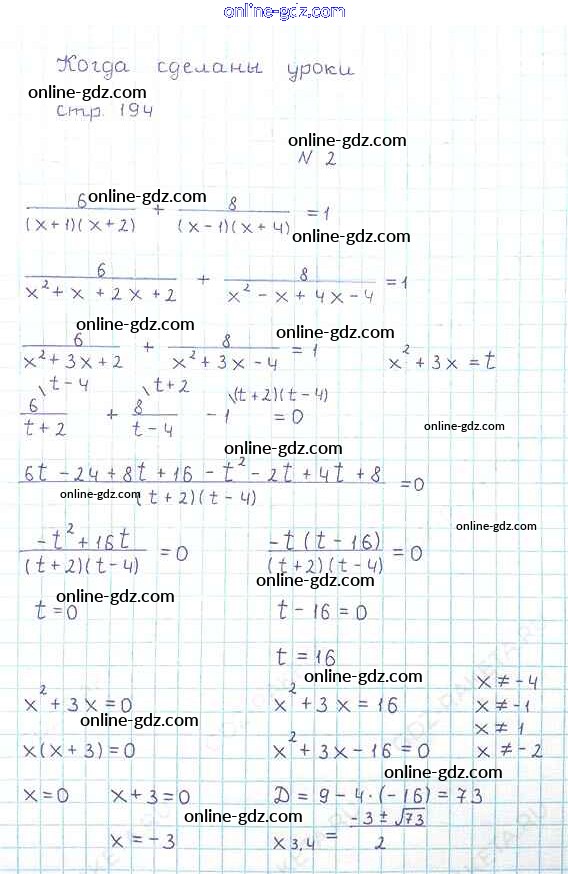 online-gdz.com
Когда сделаны уроки
online-gdz.com
стр. 194
online-gdz.com
N 2
6/((x+1)(x+2)) + 8/((x-1)(x+4)) = 1
online-gdz.com
online-gdz.com
6/(x²+x+2x+2) + 8/(x²-x+4x-4) = 1
online-gdz.com
online-gdz.com
6/(x²+3x+2) + 8/(x²+3x-4) = 1 x²+3x=t
\t-4 \t+2 \(t+2)(t-4)
6/(t+2) + 8/(t-4) - 1 = 0
online-gdz.com
online-gdz.com
(6t-24+8t+16-t²-2t+4t+8)/((t+2)(t-4)) = 0
online-gdz.com
online-gdz.com
(-t²+16t)/((t+2)(t-4)) = 0 (-t(t-16))/((t+2)(t-4)) = 0
online-gdz.com
online-gdz.com
t=0 t-16=0
t=16
online-gdz.com
x≠-4
x²+3x=0 x²+3x=16 x≠-1
online-gdz.com
x≠1
x(x+3)=0 x²+3x-16=0 x≠-2
online-gdz.com
x=0 x+3=0 D=9-4·(-16)=73
online-gdz.com
x=-3 x3,4 = (-3±√73)/2